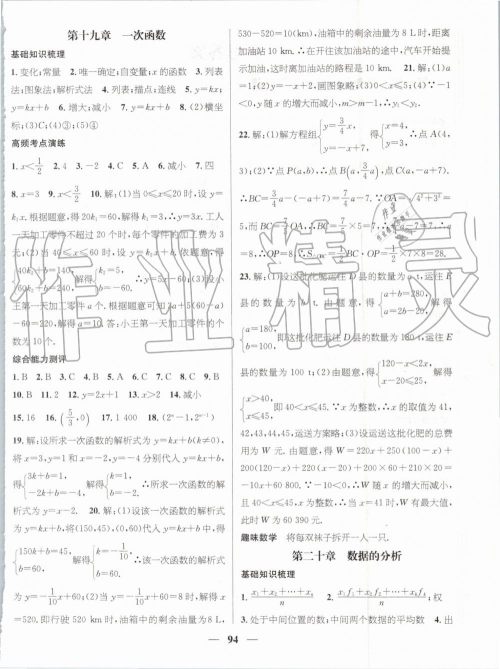 第十九章　一次函数
基础知识梳理
1. 变化;常量　2. 唯一确定;自变量;x 的函数　3. 列表
法;图象法;解析式法　4. 列表;描点;连线　5. y=kx;
y=kx;y=kx+b　6. 增大;减小　7. y=kx+b　8. (2)横坐
标;(3)C;(4)③;(5)④
高频考点演练
1. x<1/2　2. 4　3. -2　4. C　5. A　6. 减小　7. 四
8. x=3　9. x<3/2　10. 解:(1)当 0≤x≤20 时,设 y=
k₁x. 根据题意,得 20k₁=60,解得 k₁=3;∴y=3x. 工人
一天加工零件不超过 20 个时,每个零件的加工费为 3
元;(2)当 40≤x≤60 时,设 y=kx+b,依题意,得
解得 ∴y=5x-60;(3)设小
王第一天加工零件 a 个,根据题意可知3a+5(60-a)
-60=220,解得 a=10. 答:小王第一天加工零件的个
数为 10 个.
综合能力测评
1. B　2. B　3. C　4. B　5. B　6. C　7. A　8. D　9. C
10. B　11. D　12. y=2x+1　13. x>2　14. 减小
15. 16　16. (5/3,0)　17. 1 400　18. (2ⁿ-1,2ⁿ⁻¹)
19. 解:设所求一次函数的解析式为 y=kx+b(k≠0),
将 x=3,y=1 和 x=-2,y=-4 分别代入 y=kx+b,
得{3k+b=1, -2k+b=-4. 解得{k=1, b=-2. ∴所求一次函数的解
析式为 y=x-2　20. 解:(1)设该一次函数的解析式为
y=kx+b,将(150,45),(0,60)代入 y=kx+b 中,得
{150k+b=45, b=60. 解得{k=-1/10, b=60. ∴该一次函数的解析式
为 y=-1/10x+60;(2)当 y=-1/10x+60=8 时,解得 x
=520. 即行驶 520 km 时,油箱中的剩余油量为 8 L.
530-520=10(千米),油箱中的剩余油量为 8 L 时,距
离加油站 10 km. ∴在开往该加油站的途中,汽车开始
提示加油,这时离加油站的路程是 10 km.　21. 解:(1)a
=1;(2)y=-x+2,画图象略;(3)0<x≤5;(4)∵-1
<0,y 随 x 的增大而减小,m>m-1,∴y₁<y₂.
22. 解:(1)解方程组{y=3/4x, y=-x+7, 得{x=4, y=3, ∴点 A(4,
3);(2)∵点 P(a,0),∴点 B(a,3/4a),点 C(a,-a+7).
∴BC=3/4a-(-a+7)=7/4a-7. ∵OA=√(4²+3²)=
23. 解:(1)设运送这批化肥运往 D 县的数量为 a t,运往 E
县的数量为 b t. 由题意,得{a+b=280, a=2b-20, 解得
{a=180, b=100, 即这批化肥运往 D 县的数量为 180 t,运往 E
县的数量为 100 t;(2)由题意,得{120-x<2x, x-20≤25, 解得
{x>40, x≤45, 即 40<x≤45. ∵x 为整数,∴x 的取值为 41,
42,43,44,45,运送方案略;(3)设运送这批化肥的总费
用为 W 元. 由题意,得 W=220x+250(100-x)+
200(120-x)+220(x-20)+200×60+210×20=
-10x+60 800. ∵-10<0,∴W 随 x 的增大而减小,
且 40<x≤45,x 为整数,∴当 x=41 时,W 有最大值,
此时 W 为 60 390 元.
趣味数学　将每双袜子拆开一人一只.
第二十章　数据的分析
基础知识梳理
3. 处于中间位置的数;中间两个数据的平均数　4. 出
94